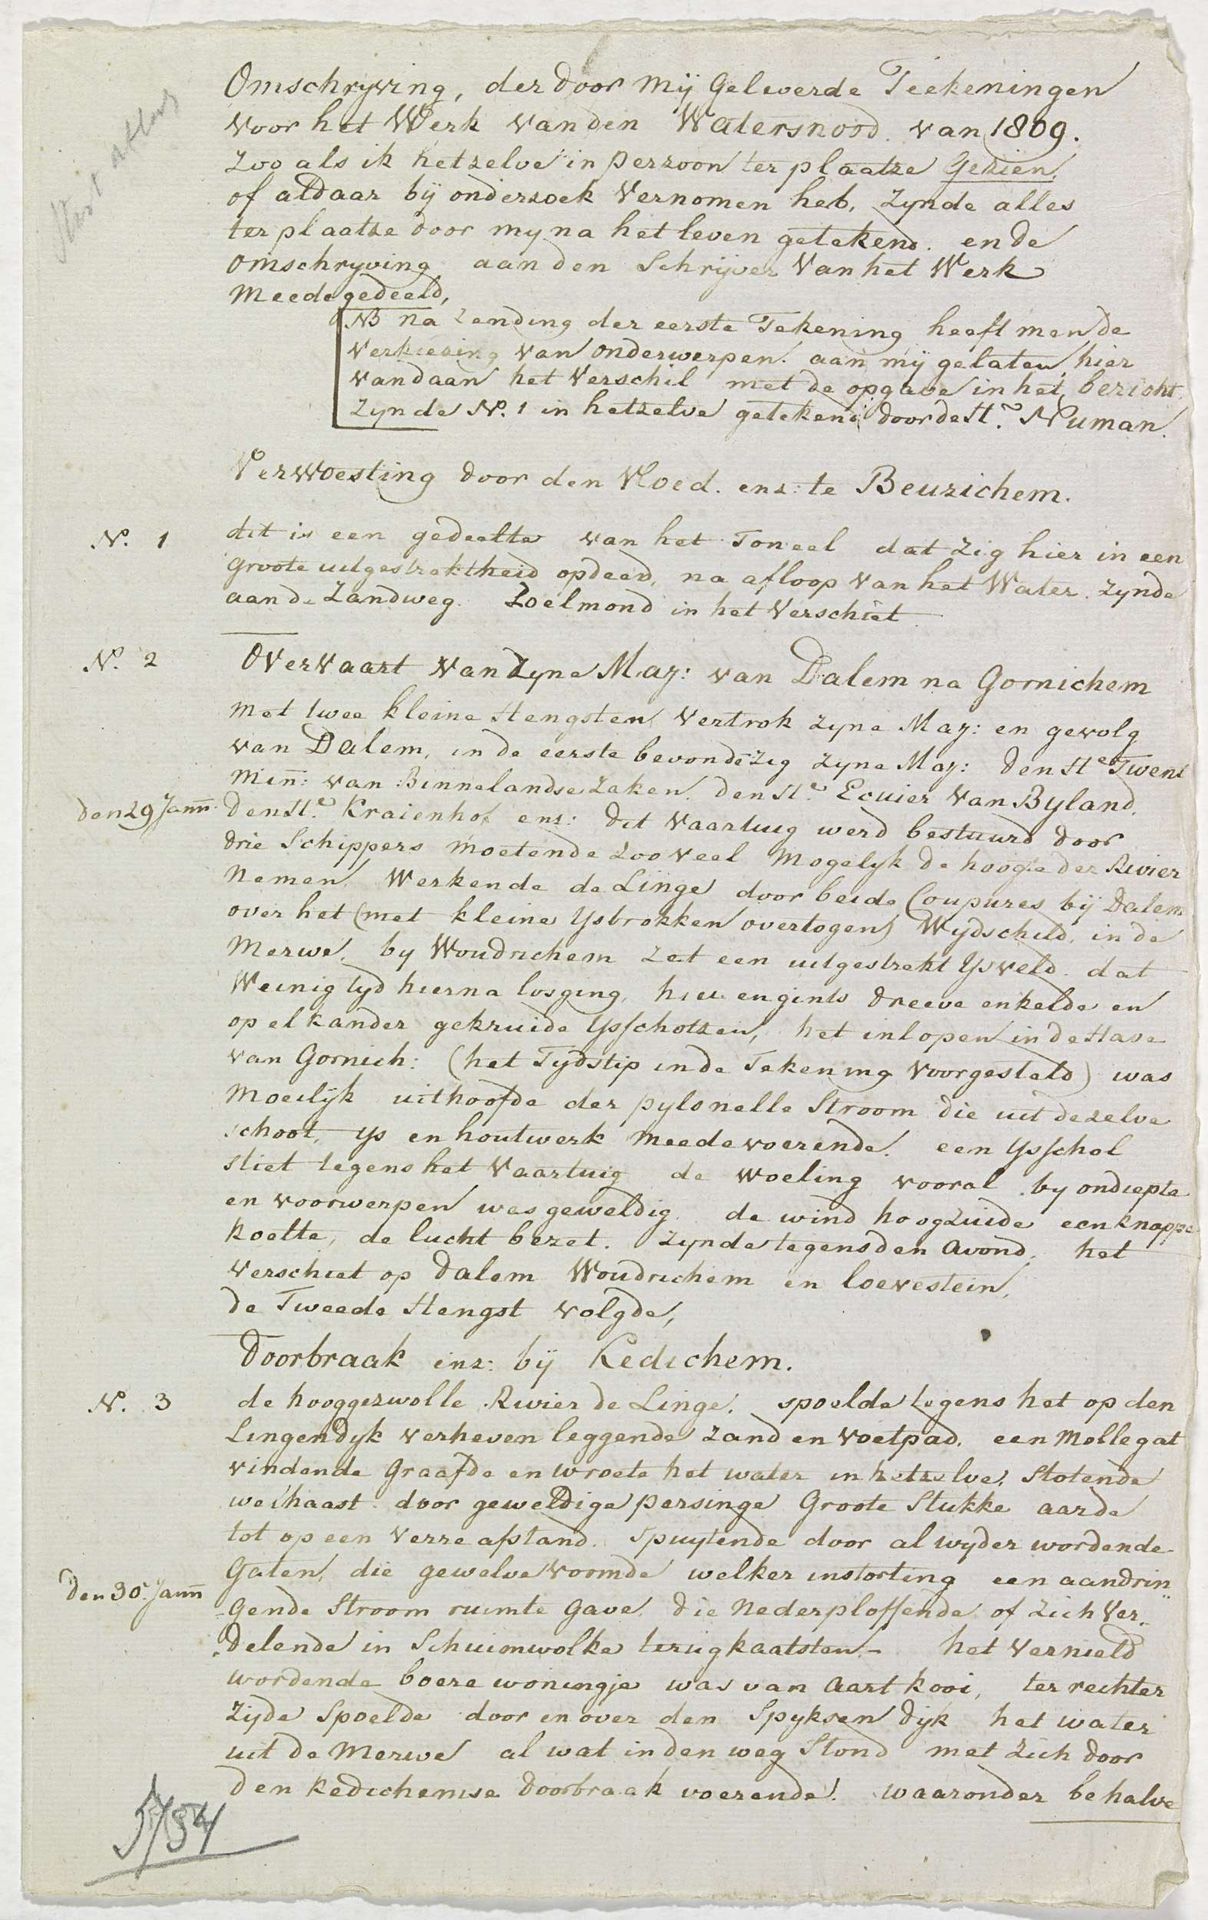 Omschryving, der door mij Geleverde Teekeningen
voor het Werk van den Watersnood van 1809.
Zoo als ik hetzelve in perzoon ter plaatze Gezien,
of aldaar bij onderzoek vernomen heb, Zynde alles
ter plaatze door my na het leven getekend. en de
omschryving aan den Schrijver van het Werk
Meedegedeeld,
NB na Zending der eerste Tekening heeft men de
verkiezing van onderwerpen aan mij gelaten, hier
van daan het verschil met de opgave in het bericht.
Zynde No. 1 in hetzelve getekend door de Hr. Numan.
Verwoesting door den Vloed. enz: te Beuzichem.
No. 1 dit is een gedeelte van het Toneel dat Zig hier in een
groote uitgestrektheid opdeed, na afloop van het Water. Zynde
aan de Zandweg. Zoelmond in het Verschiet.
No. 2 Overvaart van Zyne May: van Dalem na Gornichem
Met twee kleine Hengsten, vertrok Zyne May: en gevolg
van Dalem, in de eerste bevond zig Zyne May: den Hr Twent
Min: van Binnelandse Zaken. den Hr. Ecuier van Byland.
den 29 Janu. den Hr. Kraienhof enz: dit vaartuig werd bestuurd door
drie Schippers moetende Zoo veel Mogelyk de hoogte der Rivier
Nemen. Werkende de Linge door beide Coupures bij Dalem
over het (met kleine Ysbrokken overtogen) Wydschild, in de
Merwe. by Woudrichem zat een uitgestrekt Ysveld. dat
Weinig tyd hierna losging, hier en gints dreeve enkelde en
op elkander gekruide Ysschotzen, het inlopen in de Have
van Gornich: (het Tydstip in de Tekening voorgesteld) was
Moeilyk uit hoofde der pylsnelle Stroom die uit dezelve
schoot, ys en houtwerk meedevoerende. een Ysschol
stiet tegens het Vaartuig de woeling vooral by ondiepte
en voorwerpen was geweldig. de wind hoog zuide een knappe
koelte, de lucht bezet. Zynde tegens den Avond. het
Verschiet op Dalem Woudrichem en Loevestein,
de Tweede Hengst volgde,
Doorbraak enz: bij Kedichem.
No. 3 de hooggezwolle Rivier de Linge. spoelde tegens het op den
Lingendyk verheven leggende Zand en Voetpad. een Mollegat
vindende Graafde en wroete het water in hetzelve. Stotende
welhaast door geweldige persinge Groote Stukke aarde
tot op een verre afstand. Spuytende door al wyder wordende
Gaten, die gewelve vormde welker instorting een aandrin
den 30 Janu. Gende Stroom ruimte gave. die Nederploffende of Zich ver-
delende in Schuimwolke terugkaatsten - het vernield
wordende boere woningje was van Aart Kooi, ter rechter
Zijde Spoelde door en over den Spyksen dyk het water
uit de Merwe al wat in den weg Stond met Zich door
den Kedichemse doorbraak voerende. waaronder behalve
5/54